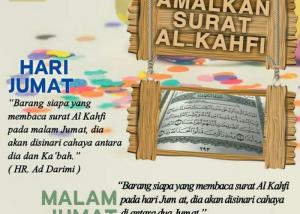 AMALKAN
SURAT
AL-KAHFI
HARI
JUMAT
“Barang siapa yang
membaca surat Al Kahfi
pada malam Jumat, dia
akan disinari cahaya antara
dia dan Ka'bah.”
( HR. Ad Darimi )
MALAM
JUMAT
“Barang siapa yang membaca surat Al Kahfi
pada hari Jum at, dia akan disinari cahaya
di antara dua Jumat.”